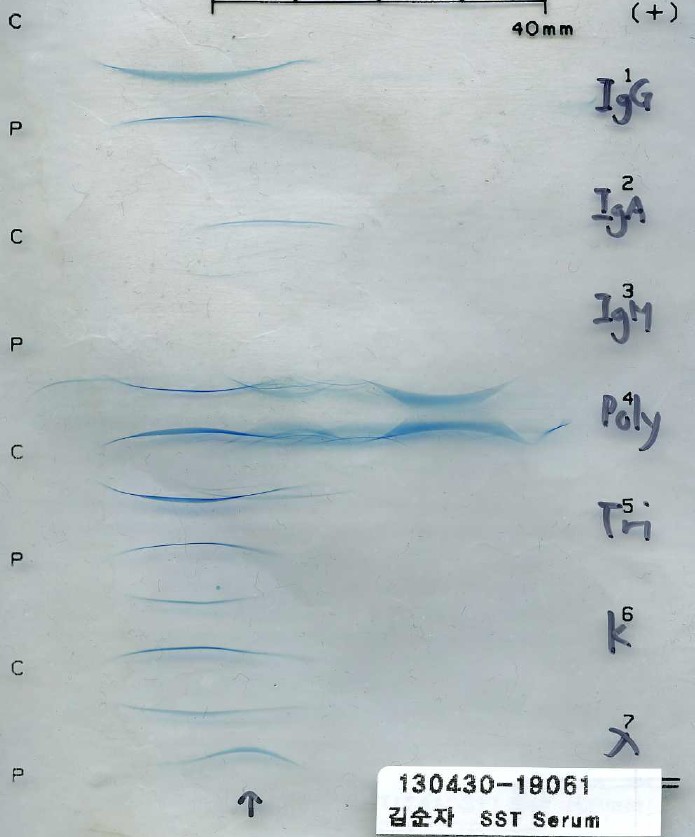 40mm
(+)
C
1
IgG
P
2
IgA
C
3
IgM
P
4
Poly
C
5
Tri
P
6
K
C
7
λ
P
130430-19061
김순자 SST Serum